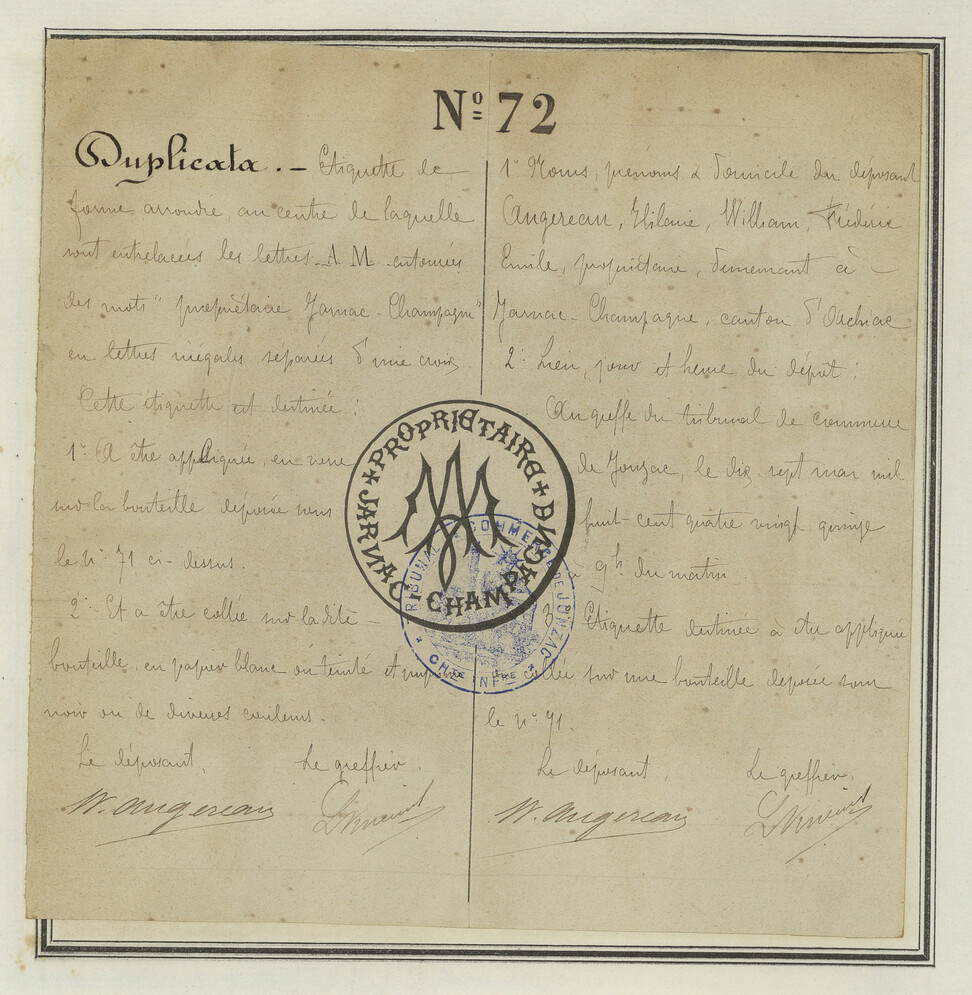 Nº 72
Duplicata. – Etiquette de
forme arrondie, au centre de laquelle
sont entrelacées les lettres A M entourées
des mots " propriétaire Jarnac-Champagne"
en lettres inégales séparées d'une croix.
Cette étiquette est destinée :
1º A être appliquée, en verre
sur la bouteille déposée sous
le nº 71 ci-dessus
2º Et a être collée sur la dite
bouteille en papier blanc ou teinté et
noir ou de diverses couleurs.
Le déposant, Le greffier.
W. Augereau
1º Noms, prénoms & domicile du déposant
Augereau, Hilaire, William, Frédéric
Emile, propriétaire, demeurant à –
Jarnac-Champagne, canton d'Archiac
2º Lieu, jour et heure du dépôt :
Au greffe du tribunal de commerce
de Jonzac, le dix sept mars mil
huit-cent quatre vingt quinze
à 9h du matin
3º Etiquette destinée à être appliquée
collée sur une bouteille déposée sous
le nº 71.
Le déposant, Le greffier.
W. Augereau
PROPRIETAIRE + JARNAC CHAMPAGNE +
AM
TRIBUNAL DE COMMERCE DE JONZAC
* CHTE INFRE *